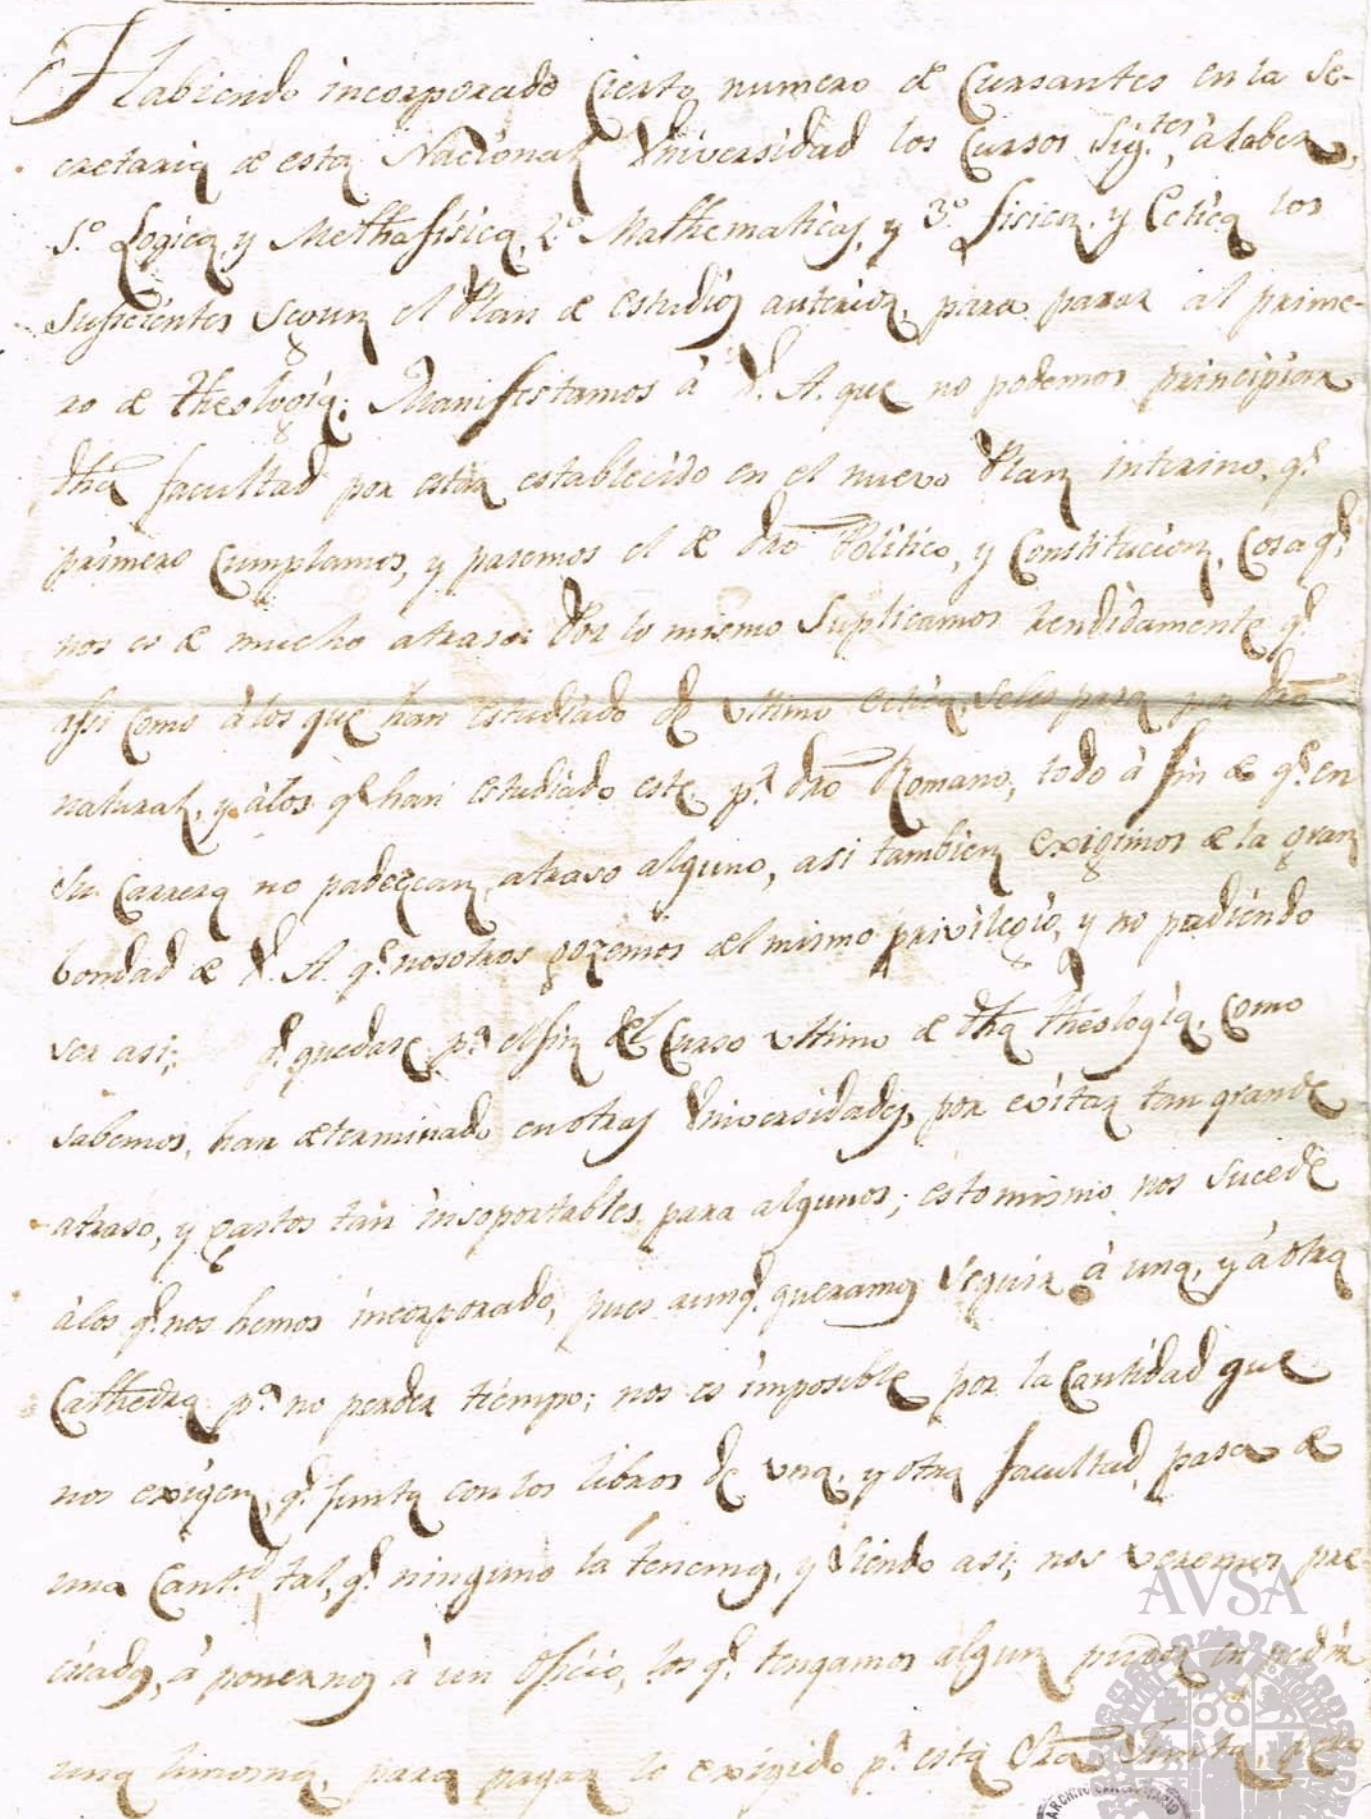 Habiendo incorporado Cierto numero de Cursantes en la Se-
cretaria de esta Nacional Universidad los Cursos Sig.tes, à saber,
1.º Logica y Methafisica, 2.º Mathematicas, y 3.º fisica, y Ectica los
suficientes segun el Plan de estudios anterior, para pasar al prime-
ro de Theologia; Manifestamos à V. A. que no podemos principiar
dha facultad por estar establecido en el nuevo Plan interino, q.e
primero Cumplamos, y pasemos el de dro Politico, y Constitucion, Cosa q.e
nos es de mucho atraso: Por lo mismo Suplicamos rendidamente q.e
assi como à los que han estudiado de ultimo Ectica, seles pasa por dro
natural, y àlos q.e han estudiado este p.r dro Romano, todo à fin de q.e en
su Carrera no padezcan atraso alguno, asi tambien exigimos de la gran
bondad de V. A. q.e nosotros gozemos del mismo privilegio, y no pudiendo
ser asi; q.e quedase p.a el fin del Curso ultimo de dha theologia, Como
sabemos, han determinado en otras Universidades, por evitar tan grande
atraso, y gastos tan insoportables para algunos; esto mismo nos sucede
àlos q.e nos hemos incorporado, pues aunq.e queramos seguir à una, y à otra
Cathedra p.a no perder tiempo; nos es imposible por la Cantidad que
nos exigen, q.e junta con los libros de una, y otra facultad, pasa de
una Cant.d tal, q.e ninguno la tenemos, y siendo asi; nos veremos pre
cisados, à ponernos à un oficio, los q.e tengamos algun pudor en pedir
una limosna, para pagar lo exigido p.r esta
AVSA
ARCHIVO UNIVERSITARIO